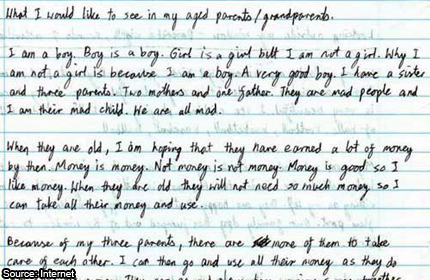 What I would like to see in my aged parents/grandparents.
I am a boy. Boy is a boy. Girl is a girl but I am not a girl. Why I
am not a girl is because I am a boy. A very good boy. I have a sister
and three parents. Two mothers and one father. They are mad people and
I am their mad child. We are all mad.
When they are old, I am hoping that they have earned a lot of money
by then. Money is money. Not money is not money. Money is good so I
like money. When they are old they will not need so much money so I
can take all their money and use.
Because of my three parents, there are more of them to take
care of each other. I can then go and use all their money as they do
Source: Internet